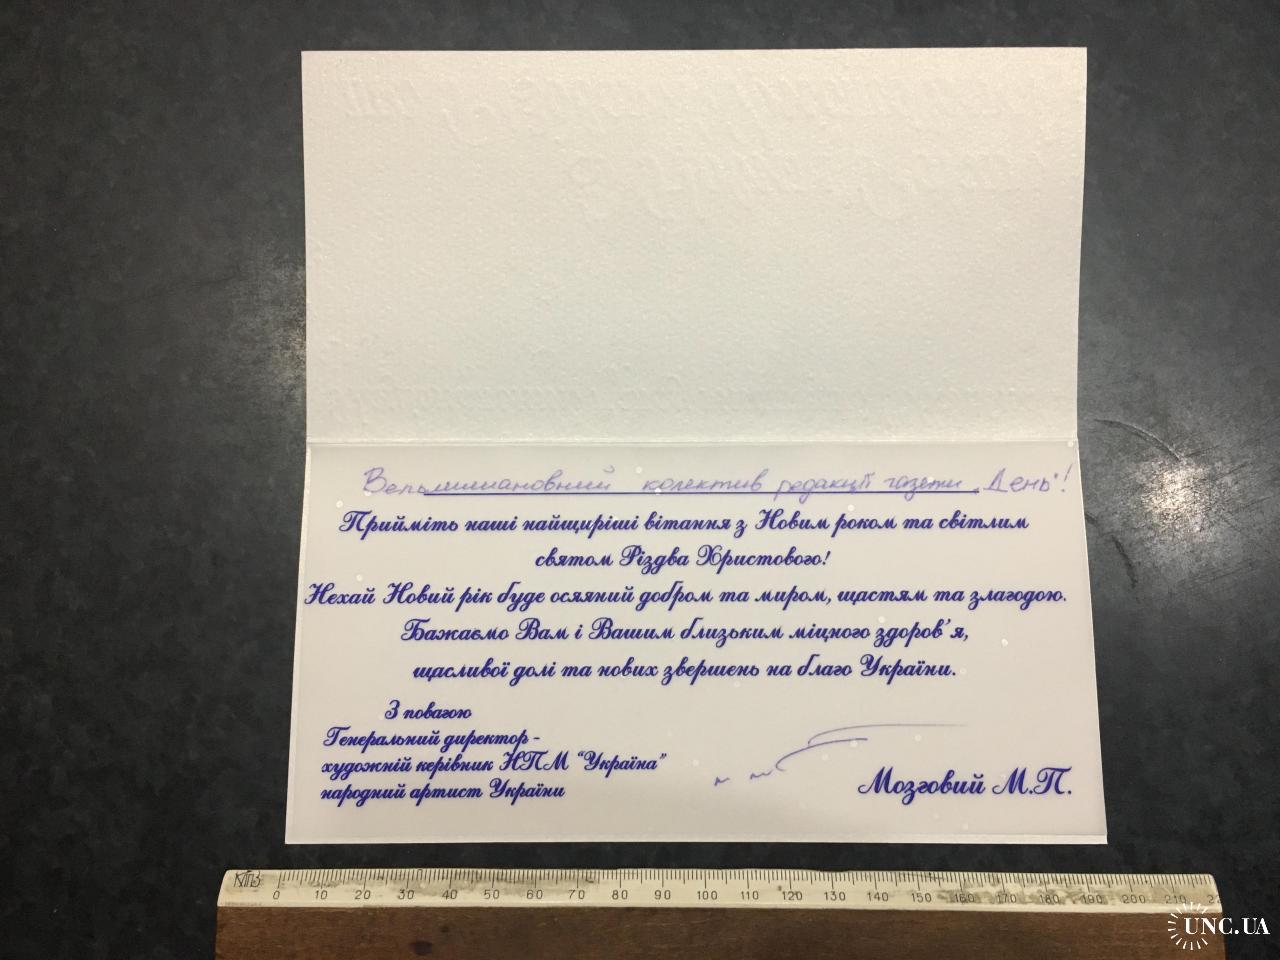 Вельмишановний колектив редакції газети „День"!
Прийміть наші найщиріші вітання з Новим роком та світлим
святом Різдва Христового!
Нехай Новий рік буде осяяний добром та миром, щастям та злагодою.
Бажаємо Вам і Вашим близьким міцного здоров'я,
щасливої долі та нових звершень на благо України.
З повагою
Генеральний директор -
художній керівник НПМ "Україна"
народний артист України
Мозговий М.П.
0 10 20 30 40 50 60 70 80 90 100 110 120 130 140 150 160 170 180 190 200 210
UNC.UA